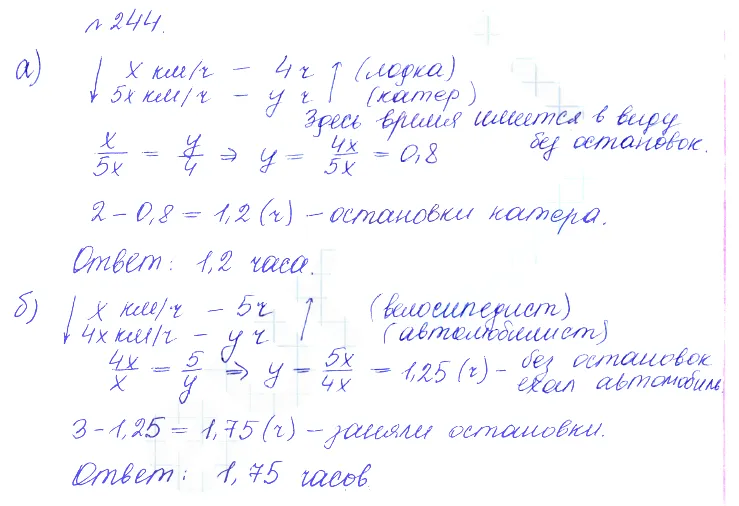 № 244.
а) ↓ x км/ч – 4 ч ↑ (лодка)
5x км/ч – y ч (катер)
Здесь время имеется в виду
без остановок.
x/5x = y/4 ⇒ y = 4x/5x = 0,8
2 – 0,8 = 1,2 (ч) – остановки катера.
Ответ: 1,2 часа.
б) ↓ x км/ч – 5 ч ↑ (велосипедист)
4x км/ч – y ч (автомобилист)
4x/x = 5/y ⇒ y = 5x/4x = 1,25 (ч) – без остановок
ехал автомобиль.
3 – 1,25 = 1,75 (ч) – заняли остановки.
Ответ: 1,75 часов.